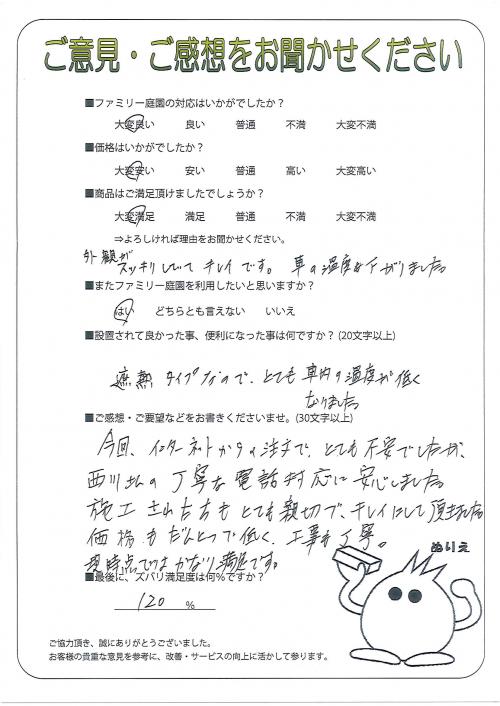 ご意見・ご感想をお聞かせください
■ファミリー庭園の対応はいかがでしたか？
大変良い 良い 普通 不満 大変不満
■価格はいかがでしたか？
大変安い 安い 普通 高い 大変高い
■商品はご満足頂けましたでしょうか？
大変満足 満足 普通 不満 大変不満
⇒よろしければ理由をお聞かせください。
外観が
スッキリしていて キレイです。 車の温度も下がりました。
■またファミリー庭園を利用したいと思いますか？
はい どちらとも言えない いいえ
■設置されて良かった事、便利になった事は何ですか？(20文字以上)
遮熱タイプなので、とても車内の温度が低く
なりました。
■ご感想・ご要望などをお書きくださいませ。(30文字以上)
今回、インターネットからの注文で、とても不安でしたが、
西川さんの丁寧な電話対応に安心しました。
施工された方もとても親切で、キレイにして頂きました。
価格もだんとつで低く、工事も丁寧。
現時点ではかなり満足です。
■最後に、ズバリ満足度は何%ですか？
120 %
ぬりえ
ご協力頂き、誠にありがとうございました。
お客様の貴重な意見を参考に、改善・サービスの向上に活かして参ります。